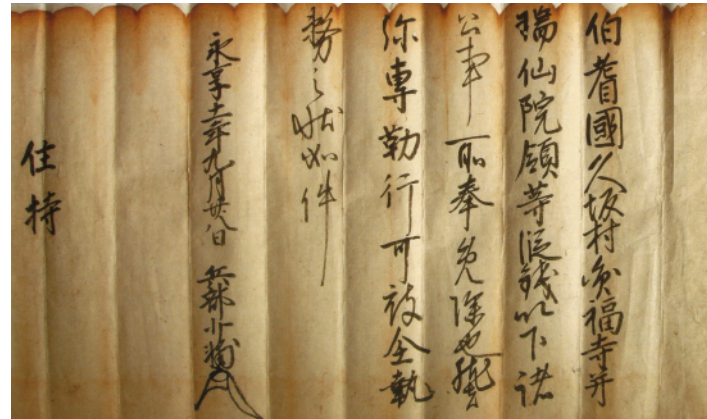 伯耆國久坂村廣福寺并
瑞仙院領等段錢以下諸
公事所奉免除也然者
弥專勤行可被全執
務之状如件
永享十二年九月廿八日 兵部少輔
住持